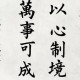 以心制境
萬事可成